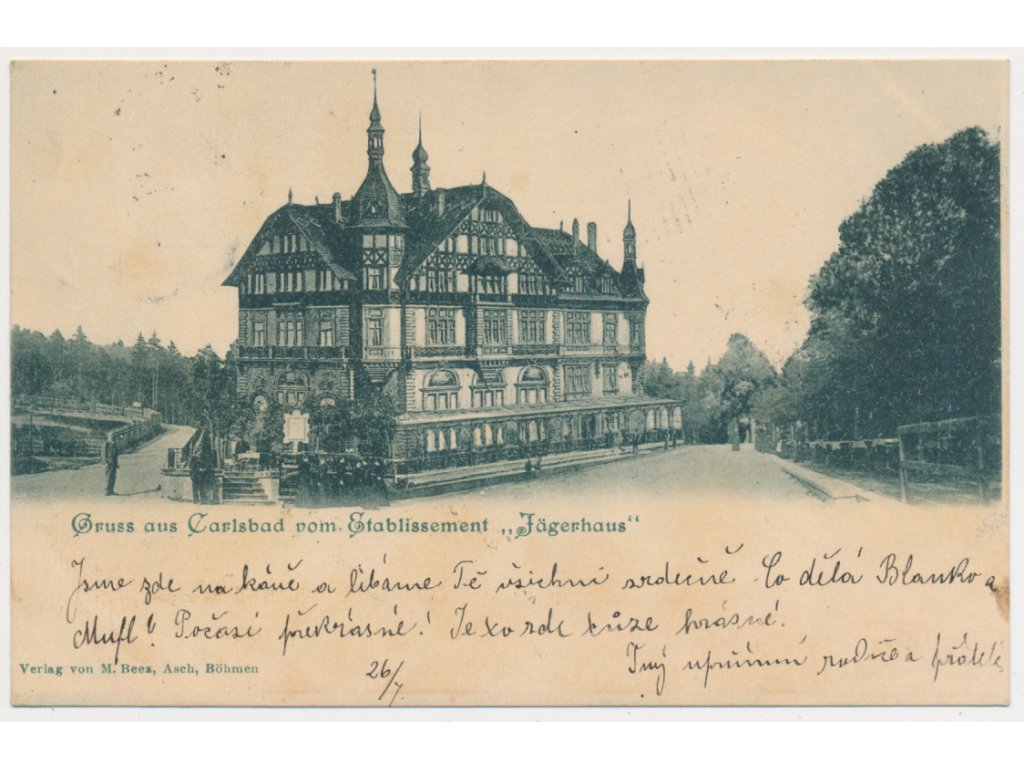 Gruss aus Carlsbad vom Etablissement „Jägerhaus"
Jsme zde na káně a líbáme Tě všichni srdečně. Co dělá Blanko a
Mufl? Počasí překrásné! Je to zde kůze krásné.
Tvý upřímní rodiče a přátelé
Verlag von M. Beez, Asch, Böhmen
26/7